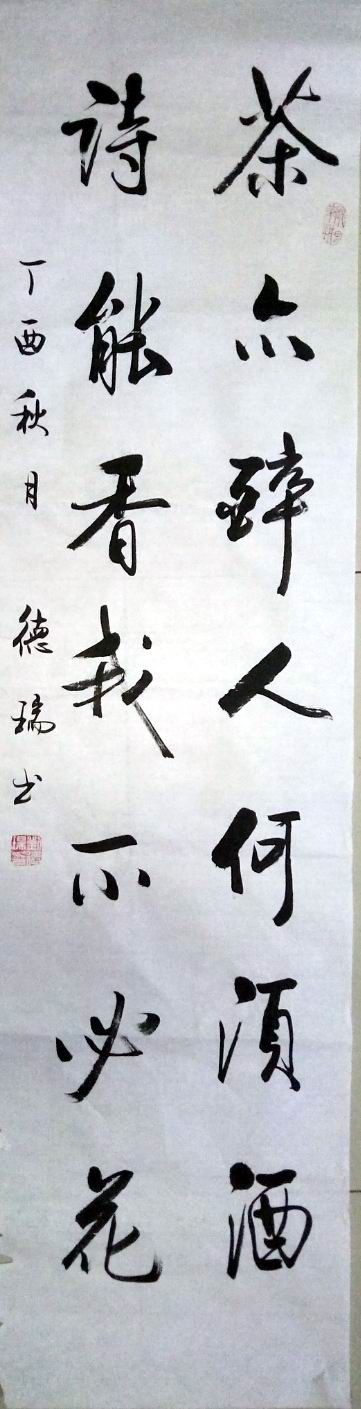 茶亦醉人何須酒
詩能香我不必花
丁酉秋月 德瑞书